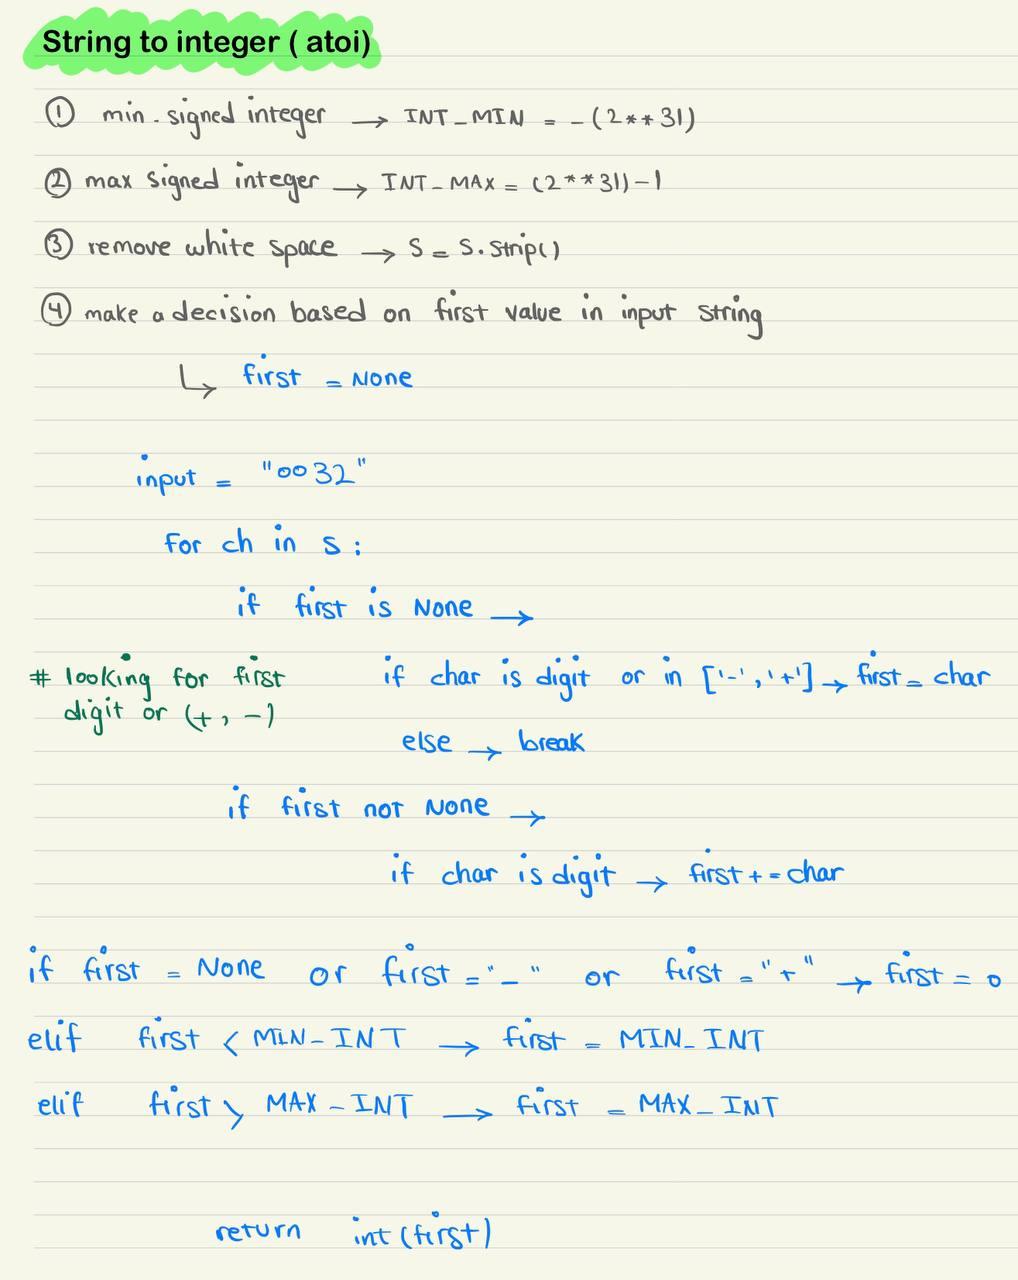 String to integer ( atoi)
① min. signed integer → INT_MIN = -(2**31)
② max signed integer → INT_MAX = (2**31)-1
③ remove white space → S = S.strip()
④ make a decision based on first value in input string
↳ first = None
input = "0032"
for ch in s:
if first is None →
# looking for first if char is digit or in ['-','+'] → first = char
digit or (+, -)
else → break
if first not None →
if char is digit → first += char
if first = None or first = "-" or first = "+" → first = 0
elif first < MIN-INT → first = MIN_INT
elif first > MAX-INT → first = MAX_INT
return int(first)